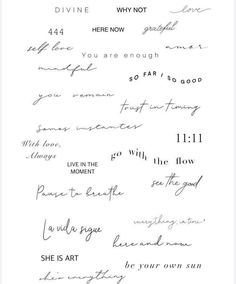 DIVINE
WHY NOT
love
444
HERE NOW
grateful
self love
You are enough
amar
mindful
SO FAR / SO GOOD
you remain
trust in timing
Somos instantes
11:11
With love,
Always
go with the flow
LIVE IN THE
MOMENT
see the good
Pause to breathe
everything in time
La vida sigue
here and now
SHE IS ART
be your own sun
she's everything